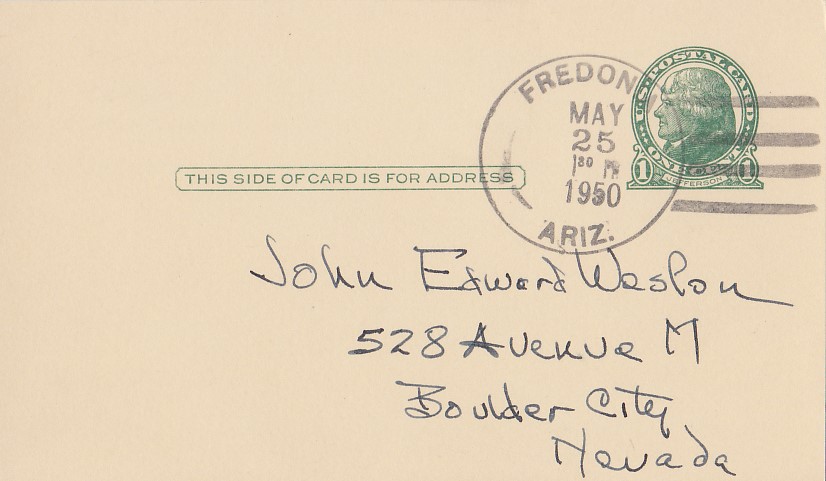 FREDONIA
MAY
25
1 30 PM
1950
ARIZ.
U.S. POSTAL CARD
1 JEFFERSON 1
THIS SIDE OF CARD IS FOR ADDRESS
John Edward Weston
528 Avenue M
Boulder City
Nevada